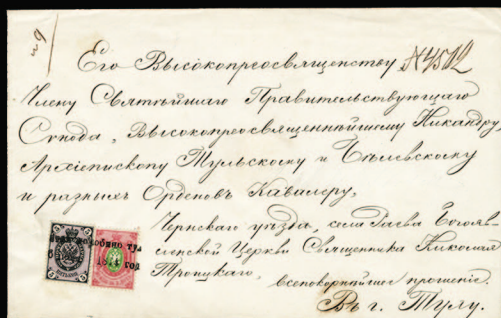 Его Высокопреосвященству № 4502
Члену Святѣйшаго Правительствующаго
Сѵнода, Высокопреосвященнѣйшему Никандру,
Архіепископу Тульскому и Бѣлевскому
и разныхъ Орденовъ Кавалеру,
Чернскаго уѣзда, села Гаева Богояв-
ленской Церкви Священника Николая
Троицкаго,
всепокорнѣйшее прошеніе.
Въ г. Тулу.